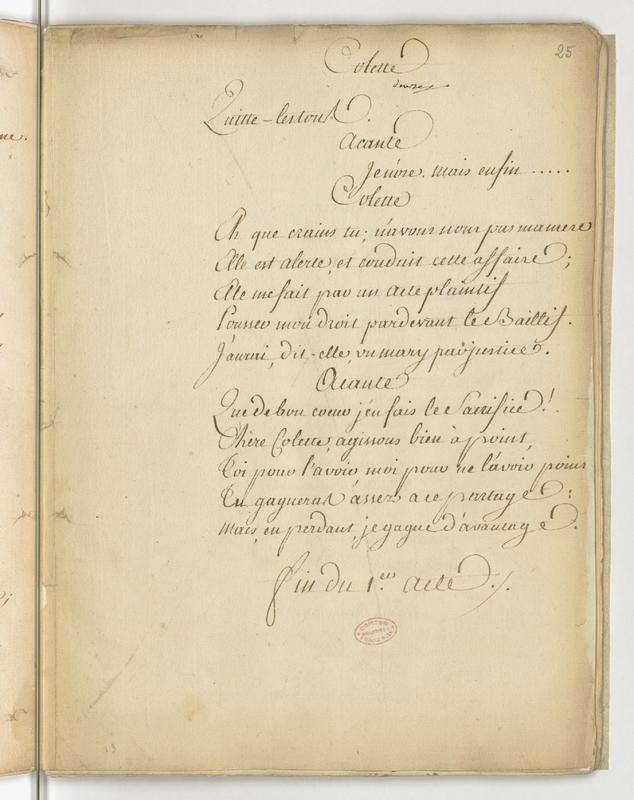 25
Colette
Quitte-les tous.
Acante
Je n'ôse. mais enfin .....
Colette
Ah que crains tu; n'avons nous pas ma mere
Elle est alerte, et conduit cette affaire;
Elle me fait par un acte plaintif
Pousser mon droit pardevant le Baillif.
J'aurai, dit-elle, un mary par justice.
Acante
Que de bon coeur j'en fais le Sacrifice!
Chère Colette, agissons bien à point,
Toi pour l'avoir moi pour ne l'avoir point
Tu gagneras assez a ce partage:
Mais, en perdant, je gagne d'avantage.
fin du 1.er acte ./.
13